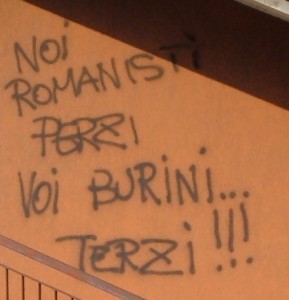 NOI
ROMANISTI
PERZI
VOI BURINI...
TERZI!!!